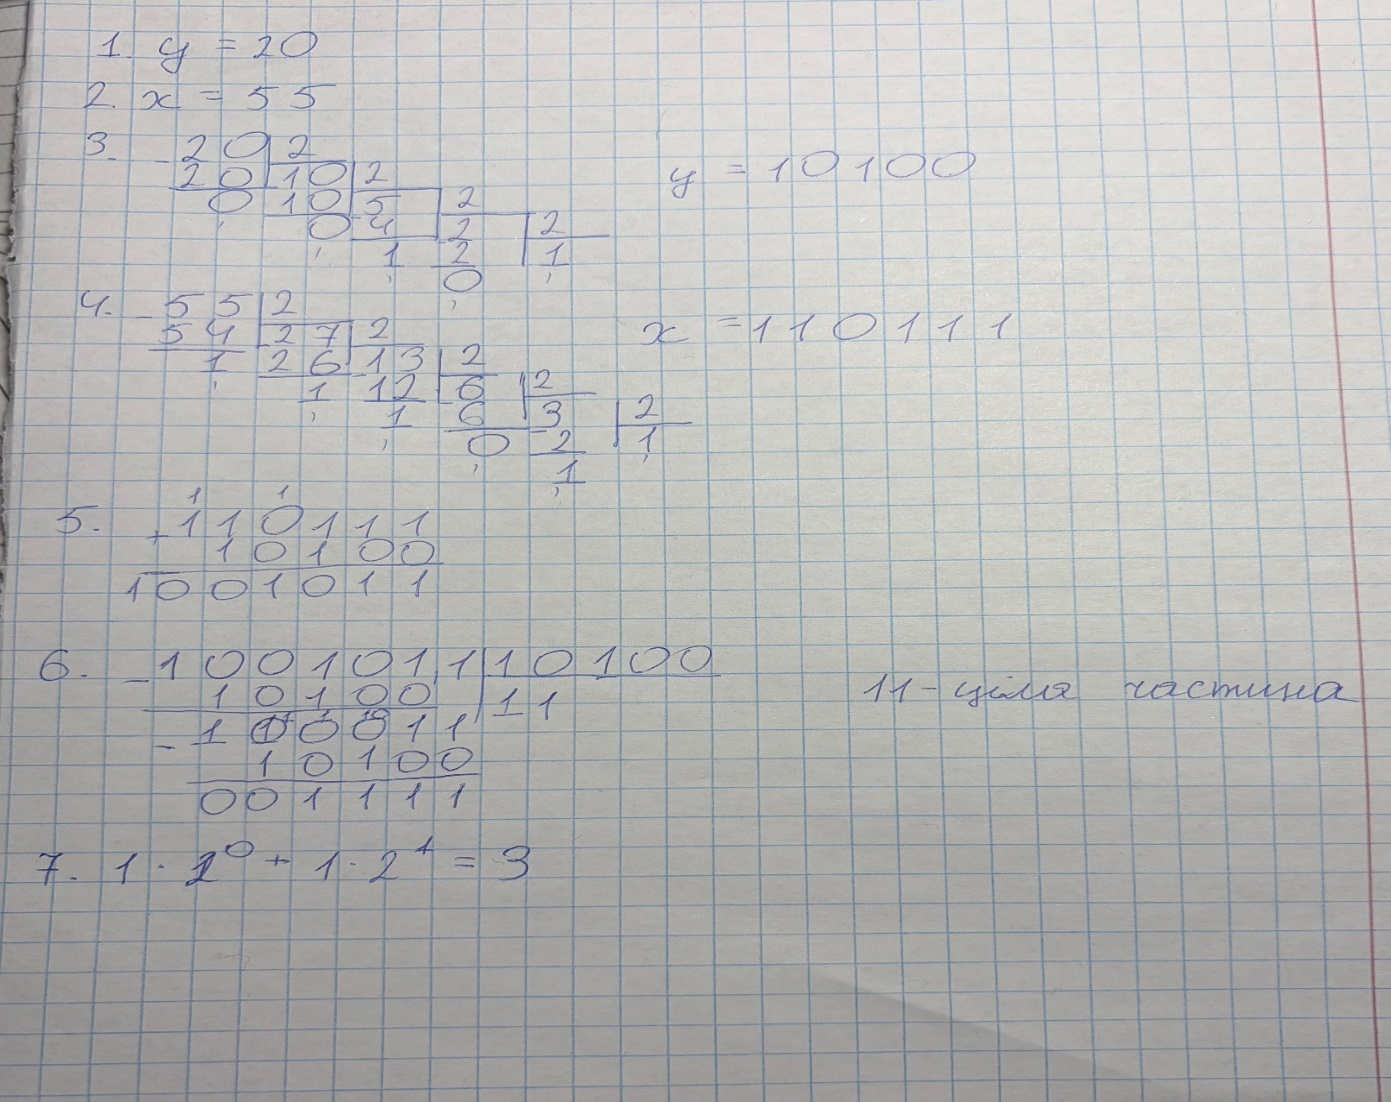 1. y = 20
2. x = 55
3. - 20 | 2
20 | 10 | 2
0 10 5 | 2
0 4 2 | 2
1 2 1
0
y = 10100
4. - 55 | 2
54 | 27 | 2
1 26 13 | 2
1 12 6 | 2
1 6 3 | 2
0 2 1
1
x = 110111
1 1
5. + 110111
10100
1001011
6. - 1001011 | 10100
10100 | 11
- 100011
10100
001111
11 - ціля частина
7. 1 · 2⁰ + 1 · 2¹ = 3